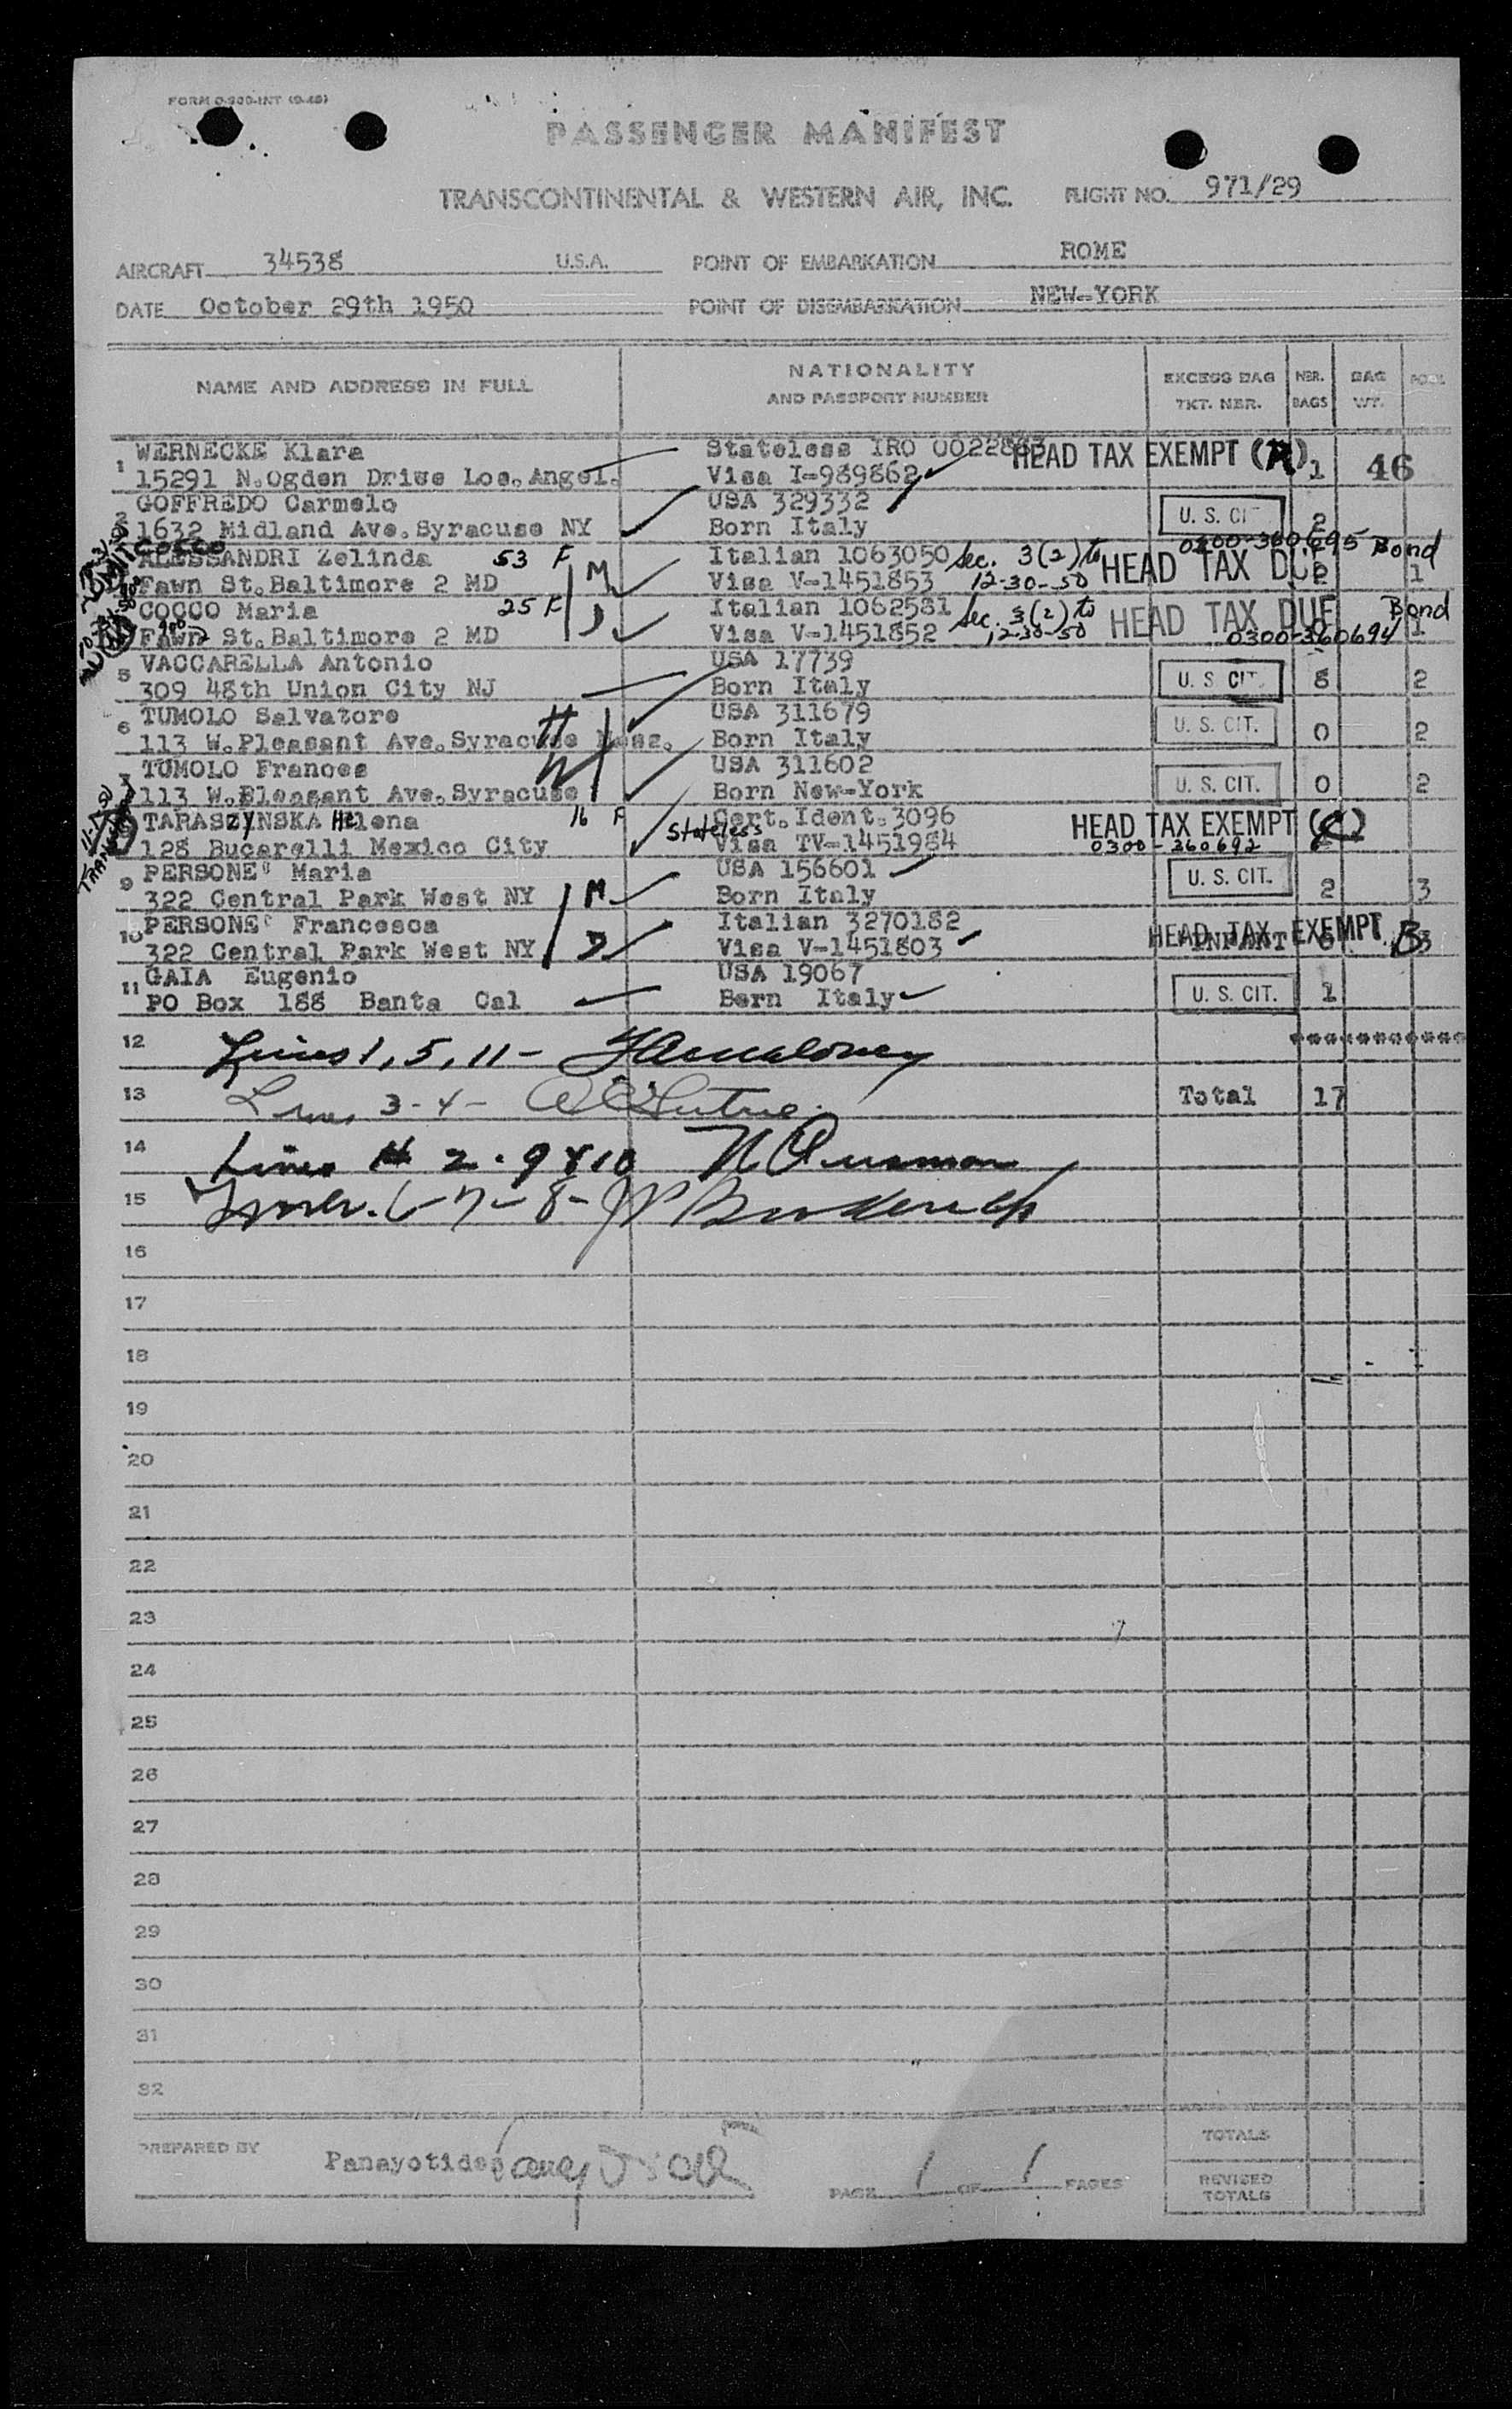 FORM O-900-INT (9-48)
PASSENGER MANIFEST
TRANSCONTINENTAL & WESTERN AIR, INC. FLIGHT NO. 971/29
AIRCRAFT 34538 U.S.A. POINT OF EMBARKATION ROME
DATE October 29th 1950 POINT OF DISEMBARKATION NEW-YORK
NAME AND ADDRESS IN FULL NATIONALITY AND PASSPORT NUMBER EXCESS BAG TKT. NBR. NBR. BAGS BAG WT. POOL
1 WERNECKE Klara Stateless IRO HEAD TAX EXEMPT (A) 1 46
15291 N.Ogden Drive Los.Angel. Visa I-989862
2 GOFFREDO Carmelo USA 329332 U. S. CIT 2
1632 Midland Ave.Syracuse NY Born Italy
ALESSANDRI Zelinda 53 F Italian 1063050 Sec. 3(2) to 0300-360695 Bond
Fawn St.Baltimore 2 MD M Visa V-1451853 12-30-50 HEAD TAX DUE 2 1
COCCO Maria 25 F Italian 1062581 Sec. 3(2) to HEAD TAX DUE Bond
Fawn St.Baltimore 2 MD D Visa V-1451852 12-30-50 0300-360694 1
5 VACCARELLA Antonio USA 17739
309 48th Union City NJ Born Italy U. S. CIT. 8 2
6 TUMOLO Salvatore H USA 311679 U. S. CIT.
113 W.Pleasant Ave.Syracuse Mass. Born Italy 0 2
7 TUMOLO Frances W USA 311602
113 W.Pleasant Ave.Syracuse Born New-York U. S. CIT. 0 2
TARASZYNSKA Helena 16 F Stateless Cert.Ident.3096 HEAD TAX EXEMPT (C)
128 Bucarelli Mexico City Visa TV-1451984 0300-360692
9 PERSONE' Maria USA 156601 U. S. CIT.
322 Central Park West NY M Born Italy 2 3
10 PERSONE' Francesca Italian 3270182 HEAD TAX EXEMPT B
322 Central Park West NY D Visa V-1451803 INFANT 0 3
11 GAIA Eugenio USA 19067
PO Box 188 Banta Cal Born Italy U. S. CIT. 1
12 Lines 1, 5, 11-
13 Lines 3-4- Total 17
14 Lines 2.9 & 10
15 Lines. 6-7-8-
16
17
18
19
20
21
22
23
24
25
26
27
28
29
30
31
32
PREPARED BY Panayotides PAGE 1 OF 1 PAGES
TOTALS
REVISED TOTALS